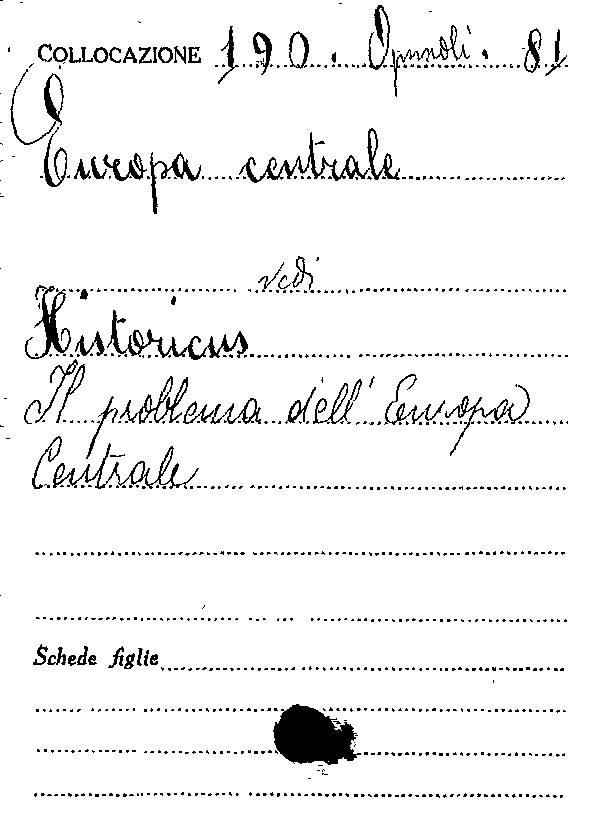 COLLOCAZIONE 190. Opuscoli. 81
Europa centrale
vedi
Historicus
Il problema dell'Europa
Centrale
Schede figlie